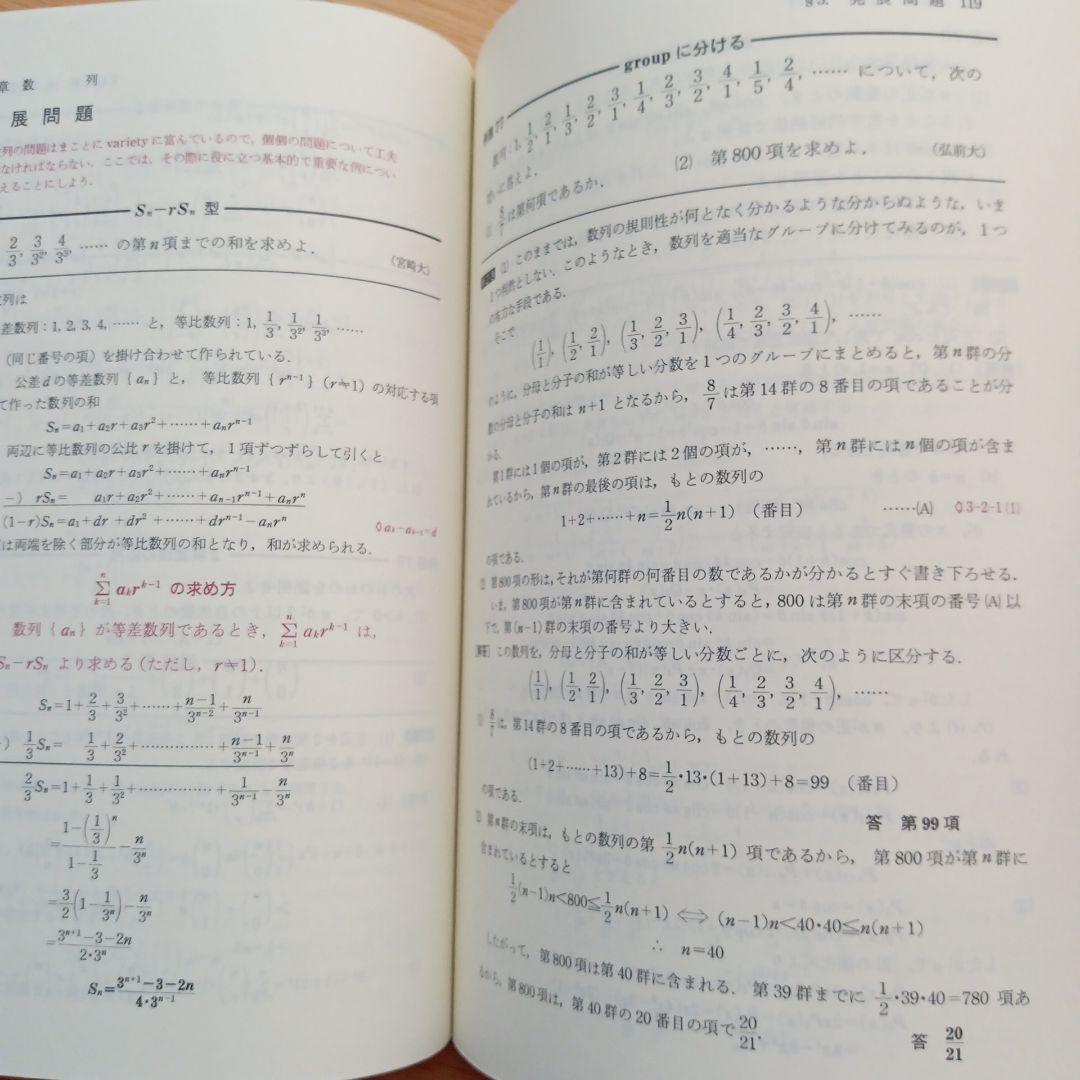 章 数 列
展 問 題
列の問題はまことに variety に富んでいるので，個個の問題について工夫
なければならない．ここでは，その際に役に立つ基本的で重要な例につい
えることにしよう．
Sₙ−rSₙ 型
2/3, 3/3², 4/3³, …… の第 n 項までの和を求めよ．
（宮崎大）
列は
差数列：1, 2, 3, 4, …… と，等比数列：1, 1/3, 1/3², 1/3³, ……
（同じ番号の項）を掛け合わせて作られている．
公差 d の等差数列 {aₙ} と，等比数列 {rⁿ⁻¹}（r≠1）の対応する項
て作った数列の和
Sₙ=a₁+a₂r+a₃r²+……+aₙrⁿ⁻¹
両辺に等比数列の公比 r を掛けて，1 項ずつずらして引くと
Sₙ=a₁+a₂r+a₃r²+……+aₙrⁿ⁻¹
−) rSₙ= a₁r+a₂r²+……+aₙ₋₁rⁿ⁻¹+aₙrⁿ
(1−r)Sₙ=a₁+dr+dr²+……+drⁿ⁻¹−aₙrⁿ
◊aₖ−aₖ₋₁=d
は両端を除く部分が等比数列の和となり，和が求められる．
∑ₖ₌₁ⁿ aₖrᵏ⁻¹ の求め方
数列 {aₙ} が等差数列であるとき，∑ₖ₌₁ⁿ aₖrᵏ⁻¹ は，
Sₙ−rSₙ より求める（ただし，r≠1）．
Sₙ=1+2/3+3/3²+……+(n−1)/3ⁿ⁻²+n/3ⁿ⁻¹
) 1/3 Sₙ= 1/3+2/3²+……………+(n−1)/3ⁿ⁻¹+n/3ⁿ
2/3 Sₙ=1+1/3+1/3²+……………+1/3ⁿ⁻¹−n/3ⁿ
=(1−(1/3)ⁿ)/(1−1/3)−n/3ⁿ
=3/2(1−1/3ⁿ)−n/3ⁿ
=(3ⁿ⁺¹−3−2n)/(2・3ⁿ)
Sₙ=(3ⁿ⁺¹−3−2n)/(4・3ⁿ⁻¹)
§3. 発 展 問 題 119
group に分ける
数列：1, 1/2, 2/1, 1/3, 2/2, 3/1, 1/4, 2/3, 3/2, 4/1, 1/5, 2/4, …… について，次の
問いに答えよ．
8/7 は第何項であるか．
(2) 第 800 項を求めよ．
（弘前大）
(1) このままでは，数列の規則性が何となく分かるような分からぬような，いま
1つ判然としない．このようなとき，数列を適当なグループに分けてみるのが，1つ
の有力な手段である．
そこで
(1/1), (1/2, 2/1), (1/3, 2/2, 3/1), (1/4, 2/3, 3/2, 4/1), ……
のように，分母と分子の和が等しい分数を 1 つのグループにまとめると，第 n 群の分
数の分母と分子の和は n+1 となるから，8/7 は第 14 群の 8 番目の項であることが分
かる．
第 1 群には 1 個の項が，第 2 群には 2 個の項が，……，第 n 群には n 個の項が含ま
れているから，第 n 群の最後の項は，もとの数列の
1+2+……+n=1/2 n(n+1) （番目） ……(A) ◊3-2-1(1)
の項である．
(2) 第 800 項の形は，それが第何群の何番目の数であるかが分かるとすぐ書き下ろせる．
いま，第 800 項が第 n 群に含まれているとすると，800 は第 n 群の末項の番号 (A) 以
下で，第 (n−1) 群の末項の番号より大きい．
[解答] この数列を，分母と分子の和が等しい分数ごとに，次のように区分する．
(1/1), (1/2, 2/1), (1/3, 2/2, 3/1), (1/4, 2/3, 3/2, 4/1), ……
(1) 8/7 は，第 14 群の 8 番目の項であるから，もとの数列の
(1+2+……+13)+8=1/2・13・(1+13)+8=99 （番目）
の項である．
答 第 99 項
(2) 第 n 群の末項は，もとの数列の第 1/2 n(n+1) 項であるから，第 800 項が第 n 群に
含まれているとすると
1/2(n−1)n<800≦1/2 n(n+1) ⟺ (n−1)n<40・40≦n(n+1)
∴ n=40
したがって，第 800 項は第 40 群に含まれる．第 39 群までに 1/2・39・40=780 項あ
るから，第 800 項は，第 40 群の 20 番目の項で 20/21．
答 20/21